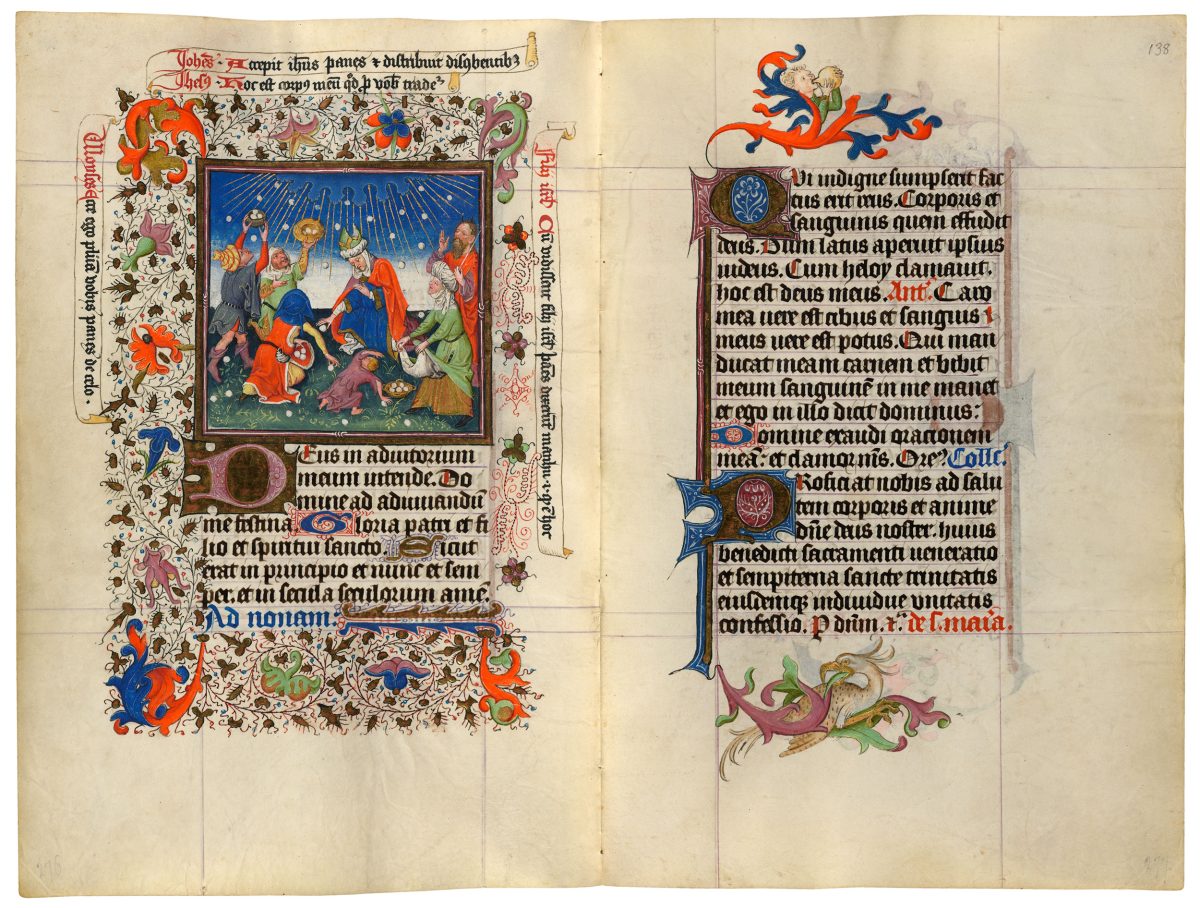 Johes · Accepit ihus panes & distribuit discubentib3
Ihesꝰ · Hoc est corpꝰ meu qd p vob trade
Moyses Ecce ego pluā vobis panes de celo ·
filij isrl Qū vidissent filij isrl panes dixerūt manhu · i · q̄ e hoc
Deus in adiutorium
meum intende. Do
mine ad adiuuandū
me festina. Gloria patri et fi
lio et spiritui sancto. Sicut
erat in principio et nunc et sem
per. et in secula seculorum amē.
Ad nonam:
138
Qui indigne sumpserit fac
tus erit reus. Corporis et
sanguinis quem effudit
deus. Dum latus aperuit ipsius
iudeus. Cum heloy clamauit.
hoc est deus meus. Ant. Caro
mea uere est cibus et sanguis
meus uere est potus. Qui man
ducat meam carnem et bibit
meum sanguinē in me manet
et ego in illo dicit dominus:
Domine exaudi orationem
meā: et clamor n̄us. Ore Coll.
Proficiat nobis ad salu
tem corporis et anime
dn̄e deus noster. huius
benedicti sacramenti ueneratio
et sempiterna sancte trinitatis
eiusdemqꝫ indiuidue unitatis
confessio. P dnm. &. de s. maria.
276
277